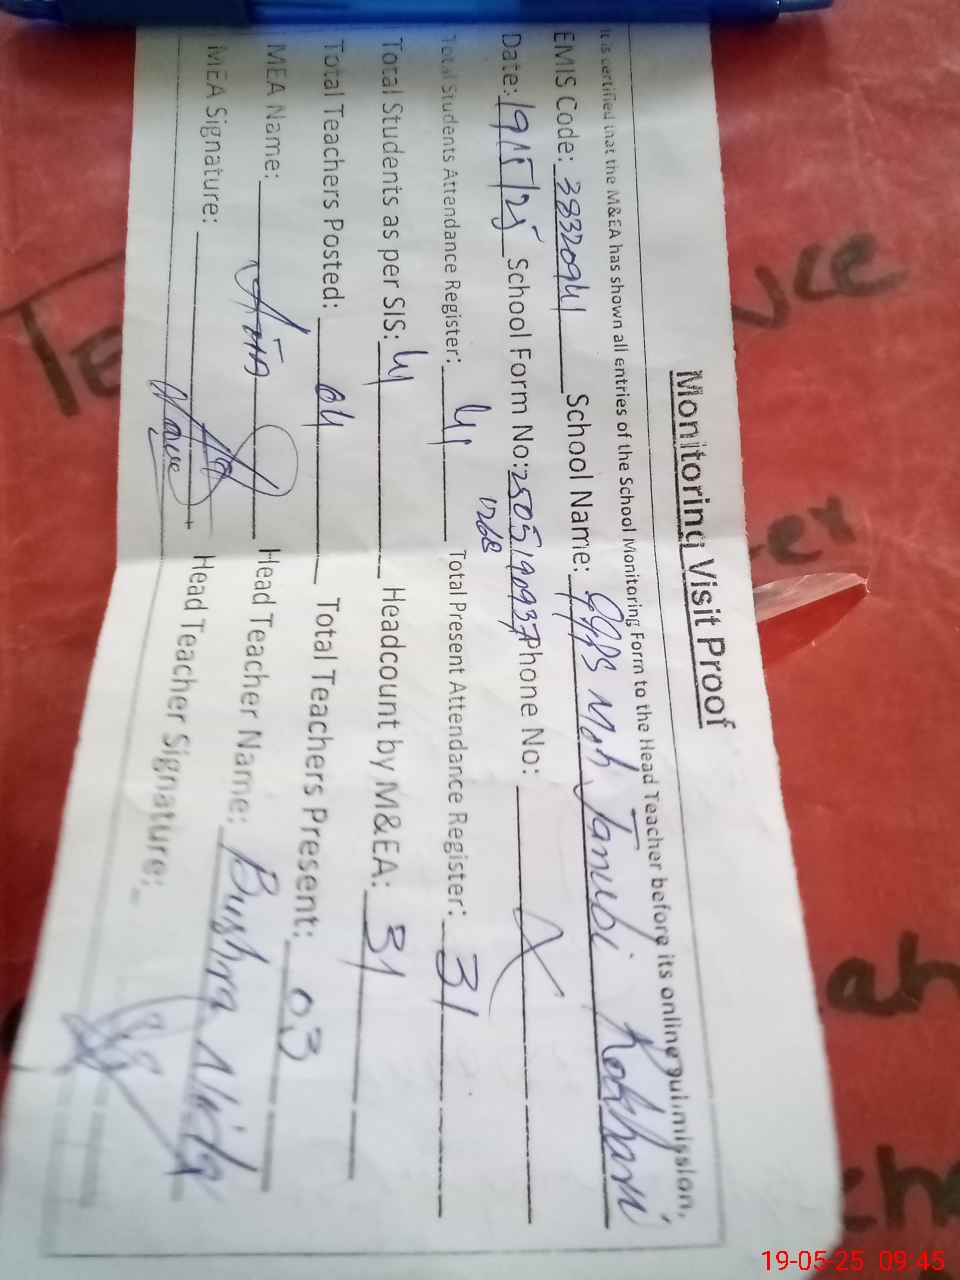 Monitoring Visit Proof
It is certified that the M&EA has shown all entries of the School Monitoring Form to the Head Teacher before its online submission,
EMIS Code: 38320941 School Name: GGPS Moh Janubi Rokhari
Date: 19/5/25 School Form No: 2505190937 Phone No: X
1268
Total Students Attendance Register: 41 Total Present Attendance Register: 31
Total Students as per SIS: 41 Headcount by M&EA: 31
Total Teachers Posted: 04 Total Teachers Present: 03
MEA Name: Head Teacher Name: Bushra
MEA Signature: Head Teacher Signature:
19-05-25 09:45